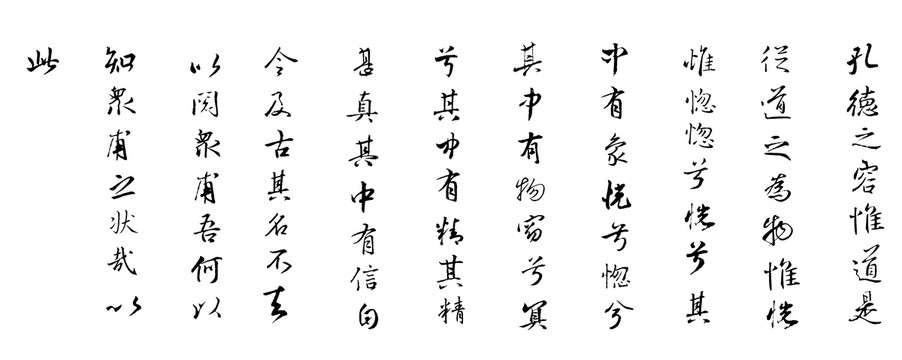 孔德之容惟道是
從道之為物惟恍
惟惚惚兮恍兮其
中有象恍兮惚兮
其中有物窈兮冥
兮其中有精其精
甚真其中有信自
今及古其名不去
以閱眾甫吾何以
知眾甫之状哉以
此